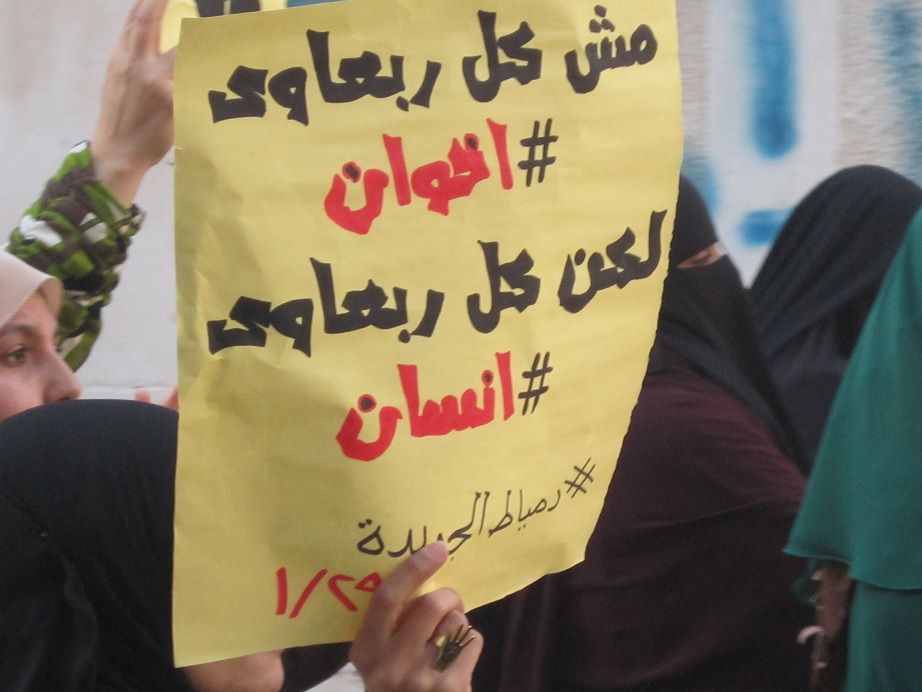 مش كل ربعاوى
#اخوان
لكن كل ربعاوى
#انسان
#دمياط الجديدة
١/٢٩